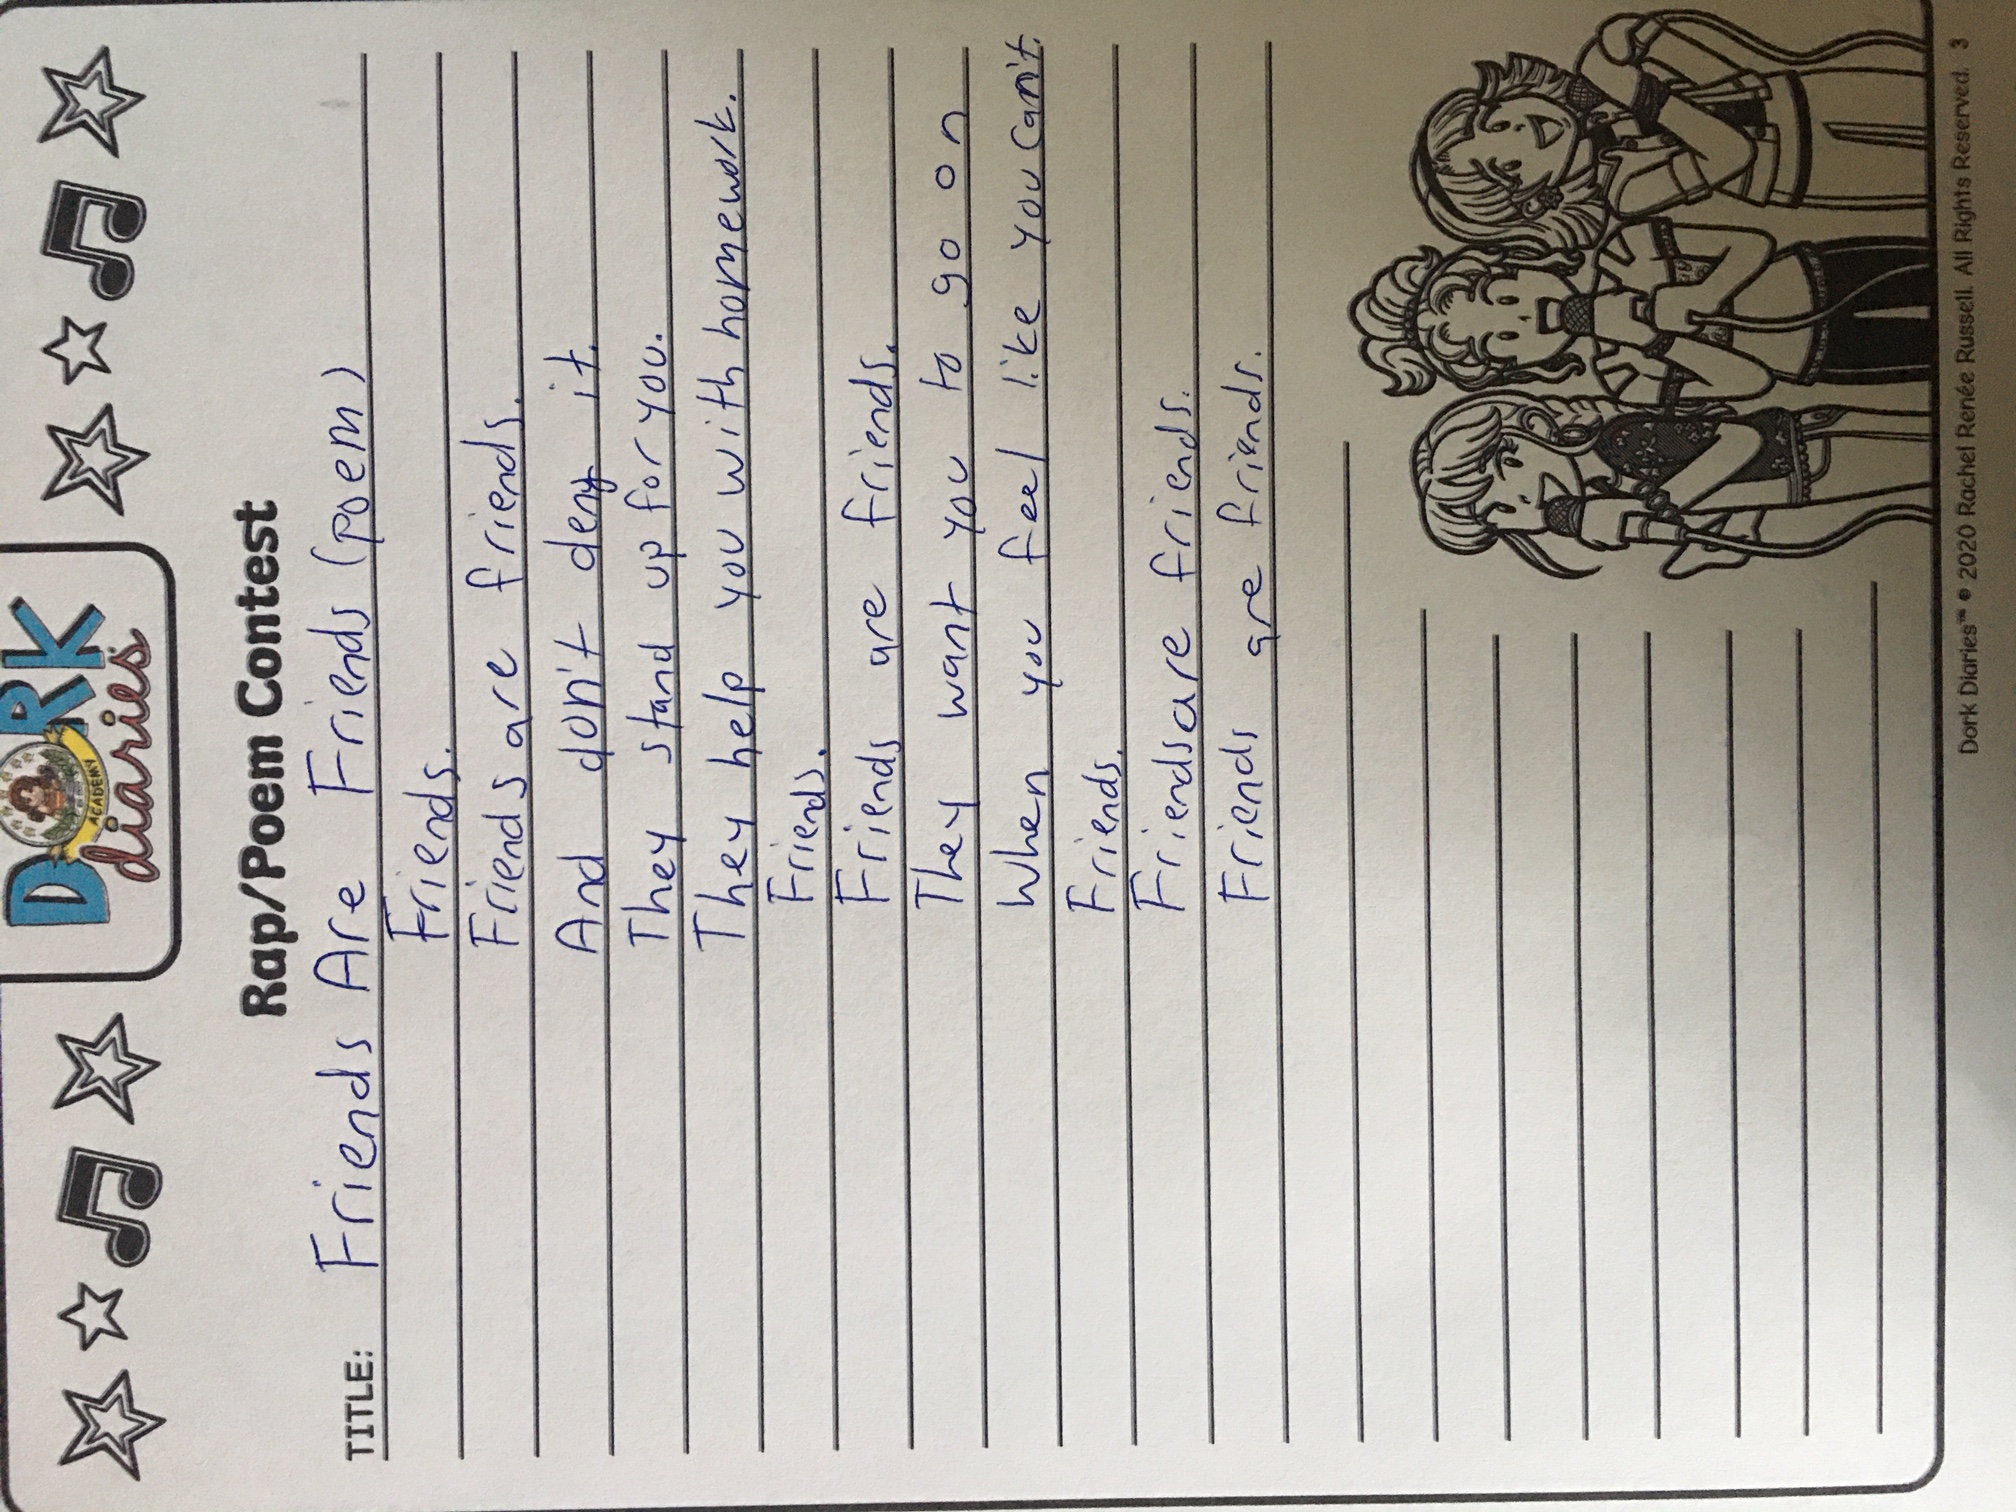 DORK
diaries
ACADEMY
Rap/Poem Contest
TITLE: Friends Are Friends (poem)
Friends.
Friends are friends.
And don't deny it.
They stand up for you.
They help you with homework.
Friends.
Friends are friends.
They want you to go on
When you feel like you can't.
Friends.
Friends are friends.
Friends are friends.
Dork Diaries™ © 2020 Rachel Renée Russell. All Rights Reserved. 3